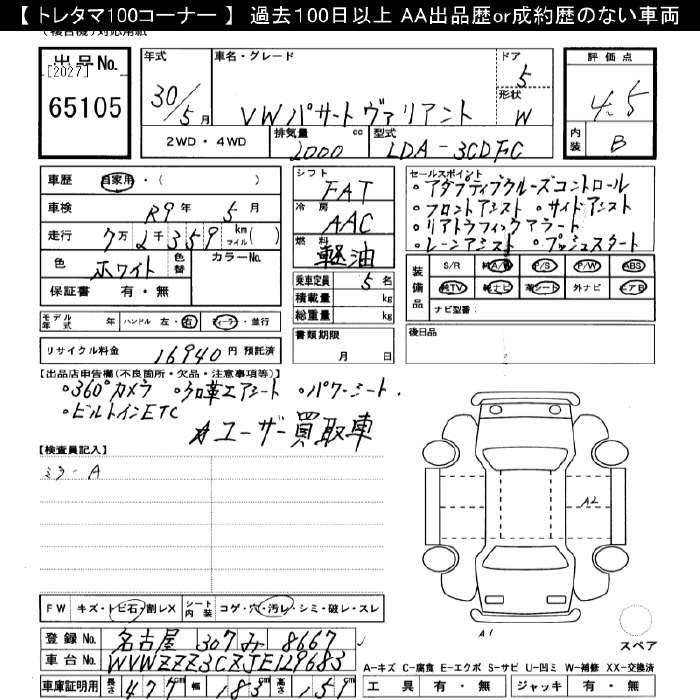 【 トレタマ100コーナー 】 過去100日以上 AA出品歴or成約歴のない車両
出品No.
[2027]
65105
年式
30/5月
車名・グレード
VW パサート ヴァリアント
ドア
5
形状
W
評価点
4.5
内装
B
2WD・4WD
排気量 2000 cc
型式 LDA-3CDFC
車歴 自家用・( )
車検 R9年 5月
走行 7万2千359 km マイル( )
色 ホワイト 色替 カラーNo.
保証書 有・無
シフト FAT
冷房 AAC
燃料 軽油
乗車定員 5名
積載量 kg
総重量 kg
セールスポイント
・アダプティブクルーズコントロール
・フロントアシスト ・サイドアシスト
・リアトラフィックアラート
・レーンアシスト ・プッシュスタート
装備品
S/R 純A/W P/S P/W ABS
純TV 純ナビ 革シート 外ナビ エアB
ナビ型番:
モデル年式 年 ハンドル 左・右 ディーラー・並行
書類期限
月 日
後日品
リサイクル料金 16940 円 預託済
【出品店申告欄(不良箇所・欠品・注意事項等)】
・360°カメラ ・黒革エアシート ・パワーシート.
・ビルトインETC
☆ユーザー買取車
【検査員記入】
ミラーA
A2
A1
FW キズ・トビ石・割レX シート内装 コゲ・穴・汚レ・シミ・破レ・スレ
登録No. 名古屋 307 み 8667
車台No. WVWZZZ3CZJE129683
スペア
A-キズ C-腐食 E-エクボ S-サビ U-凹ミ W-補修 XX-交換済
車庫証明用 長さ 477cm 幅 183cm 高さ 151cm
工具 有・無 ジャッキ 有・無